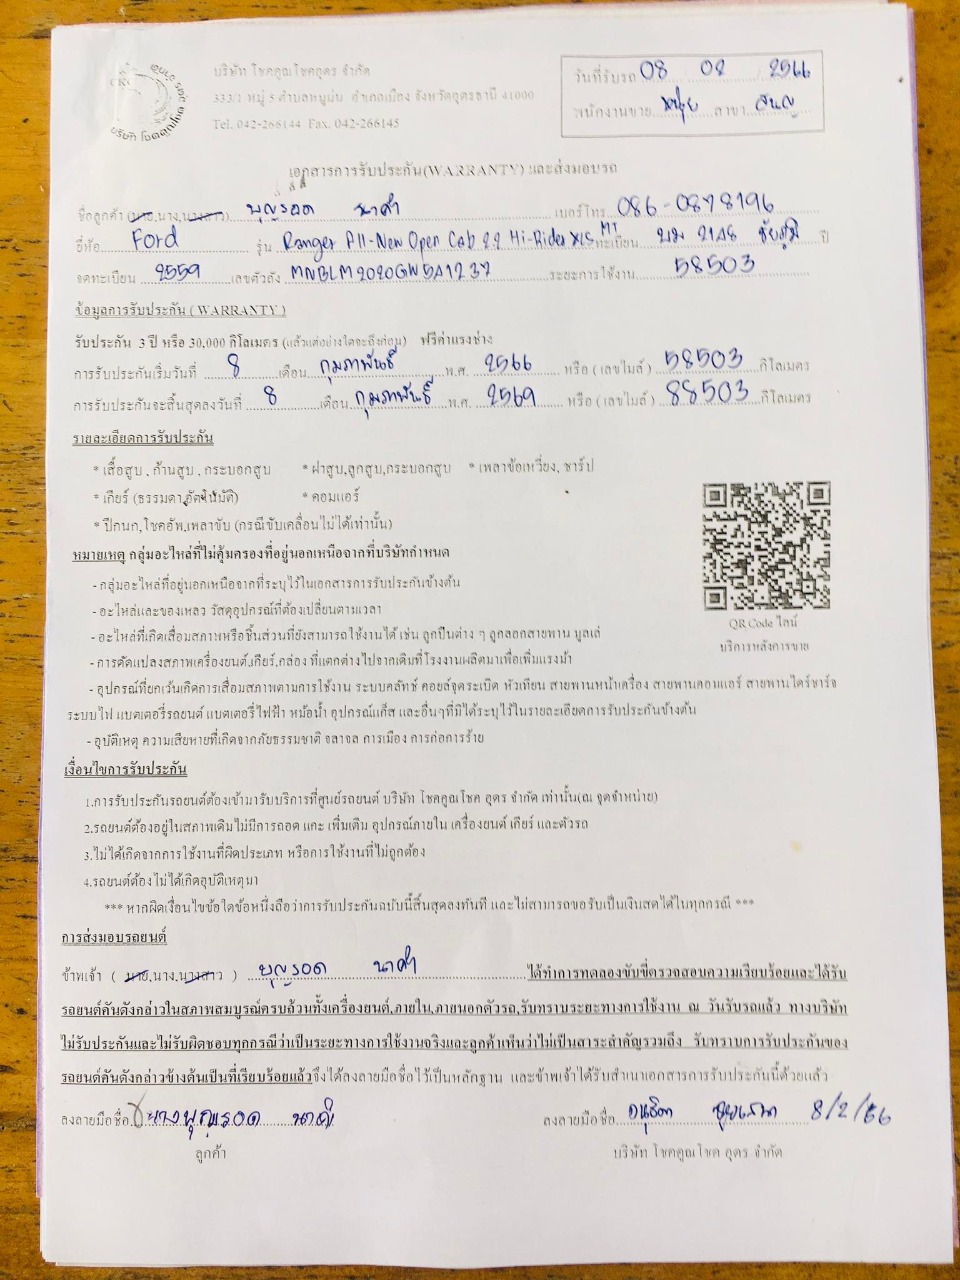 บริษัท โชคคูณโชคอุดร จำกัด
333/1 หมู่ 5 ตำบลหนูม่น อำเภอเมือง จังหวัดอุดรธานี 41000
Tel. 042-266144 Fax. 042-266145
วันที่รับรถ 08 / 02 / 2566
พนักงานขาย สาขา
เอกสารการรับประกัน(WARRANTY) และส่งมอบรถ
ชื่อลูกค้า (นาย,นาง,นางสาว) บุญรอด นาคำ เบอร์โทร 086-0878196
ยี่ห้อ Ford รุ่น Ranger All-New Open Cab 2.2 Hi-Rider XLS MT ทะเบียน 2148 ชัยภูมิ ปี
จดทะเบียน 2559 เลขตัวถัง MNBLM2020GW541237 ระยะการใช้งาน 58503
ข้อมูลการรับประกัน ( WARRANTY )
รับประกัน 3 ปี หรือ 30,000 กิโลเมตร (แล้วแต่อย่างใดจะถึงก่อน) ฟรีค่าแรงช่าง
การรับประกันเริ่มวันที่ 8 เดือน กุมภาพันธ์ พ.ศ. 2566 หรือ ( เลขไมล์ ) 58503 กิโลเมตร
การรับประกันจะสิ้นสุดลงวันที่ 8 เดือน กุมภาพันธ์ พ.ศ. 2569 หรือ ( เลขไมล์ ) 88503 กิโลเมตร
รายละเอียดการรับประกัน
* เสื้อสูบ , ก้านสูบ , กระบอกสูบ * ฝาสูบ,ลูกสูบ,กระบอกสูบ * เพลาข้อเหวี่ยง, ชาร์ป
* เกียร์ (ธรรมดา,อัตโนมัติ) * คอมแอร์
* ปีกนก,โชคอัพ,เพลาขับ (กรณีขับเคลื่อนไม่ได้เท่านั้น)
หมายเหตุ กลุ่มอะไหล่ที่ไม่คุ้มครองที่อยู่นอกเหนือจากที่บริษัทกำหนด
- กลุ่มอะไหล่ที่อยู่นอกเหนือจากที่ระบุไว้ในเอกสารการรับประกันข้างต้น
- อะไหล่และของเหลว วัสดุอุปกรณ์ที่ต้องเปลี่ยนตามเวลา
- อะไหล่ที่เกิดเสื่อมสภาพหรือชิ้นส่วนที่ยังสามารถใช้งานได้ เช่น ลูกปืนต่าง ๆ ลูกลอกสายพาน มูลเล่
- การดัดแปลงสภาพเครื่องยนต์,เกียร์,กล่อง ที่แตกต่างไปจากเดิมที่โรงงานผลิตมาเพื่อเพิ่มแรงม้า
- อุปกรณ์ที่ยกเว้นเกิดการเสื่อมสภาพตามการใช้งาน ระบบคลัทช์ คอยล์จุดระเบิด หัวเทียน สายพานหน้าเครื่อง สายพานคอมแอร์ สายพานไดร์ชาร์จ
ระบบไฟ แบตเตอรี่รถยนต์ แบตเตอรี่ไฟฟ้า หม้อน้ำ อุปกรณ์แก็ส และอื่นๆที่มิได้ระบุไว้ในรายละเอียดการรับประกันข้างต้น
- อุบัติเหตุ ความเสียหายที่เกิดจากภัยธรรมชาติ จลาจล การเมือง การก่อการร้าย
QR Code ไลน์
บริการหลังการขาย
เงื่อนไขการรับประกัน
1.การรับประกันรถยนต์ต้องเข้ามารับบริการที่ศูนย์รถยนต์ บริษัท โชคคูณโชค อุดร จำกัด เท่านั้น(ณ จุดจำหน่าย)
2.รถยนต์ต้องอยู่ในสภาพเดิมไม่มีการถอด แกะ เพิ่มเติม อุปกรณ์ภายใน เครื่องยนต์ เกียร์ และตัวรถ
3.ไม่ได้เกิดจากการใช้งานที่ผิดประเภท หรือการใช้งานที่ไม่ถูกต้อง
4.รถยนต์ต้องไม่ได้เกิดอุบัติเหตุมา
*** หากผิดเงื่อนไขข้อใดข้อหนึ่งถือว่าการรับประกันฉบับนี้สิ้นสุดลงทันที และไม่สามารถขอรับเป็นเงินสดได้ในทุกกรณี ***
การส่งมอบรถยนต์
ข้าพเจ้า ( นาย,นาง,นางสาว ) บุญรอด นาคำ ได้ทำการทดลองขับขี่ตรวจสอบความเรียบร้อยและได้รับ
รถยนต์คันดังกล่าวในสภาพสมบูรณ์ครบถ้วนทั้งเครื่องยนต์,ภายใน,ภายนอกตัวรถ,รับทราบระยะทางการใช้งาน ณ วันรับรถแล้ว ทางบริษัท
ไม่รับประกันและไม่รับผิดชอบทุกกรณีว่าเป็นระยะทางการใช้งานจริงและลูกค้าเห็นว่าไม่เป็นสาระสำคัญรวมถึง รับทราบการรับประกันของ
รถยนต์คันดังกล่าวข้างต้นเป็นที่เรียบร้อยแล้วจึงได้ลงลายมือชื่อไว้เป็นหลักฐาน และข้าพเจ้าได้รับสำเนาเอกสารการรับประกันนี้ด้วยแล้ว
ลงลายมือชื่อ นางบุญรอด นาคำ ลงลายมือชื่อ 8/2/66
ลูกค้า บริษัท โชคคูณโชค อุดร จำกัด